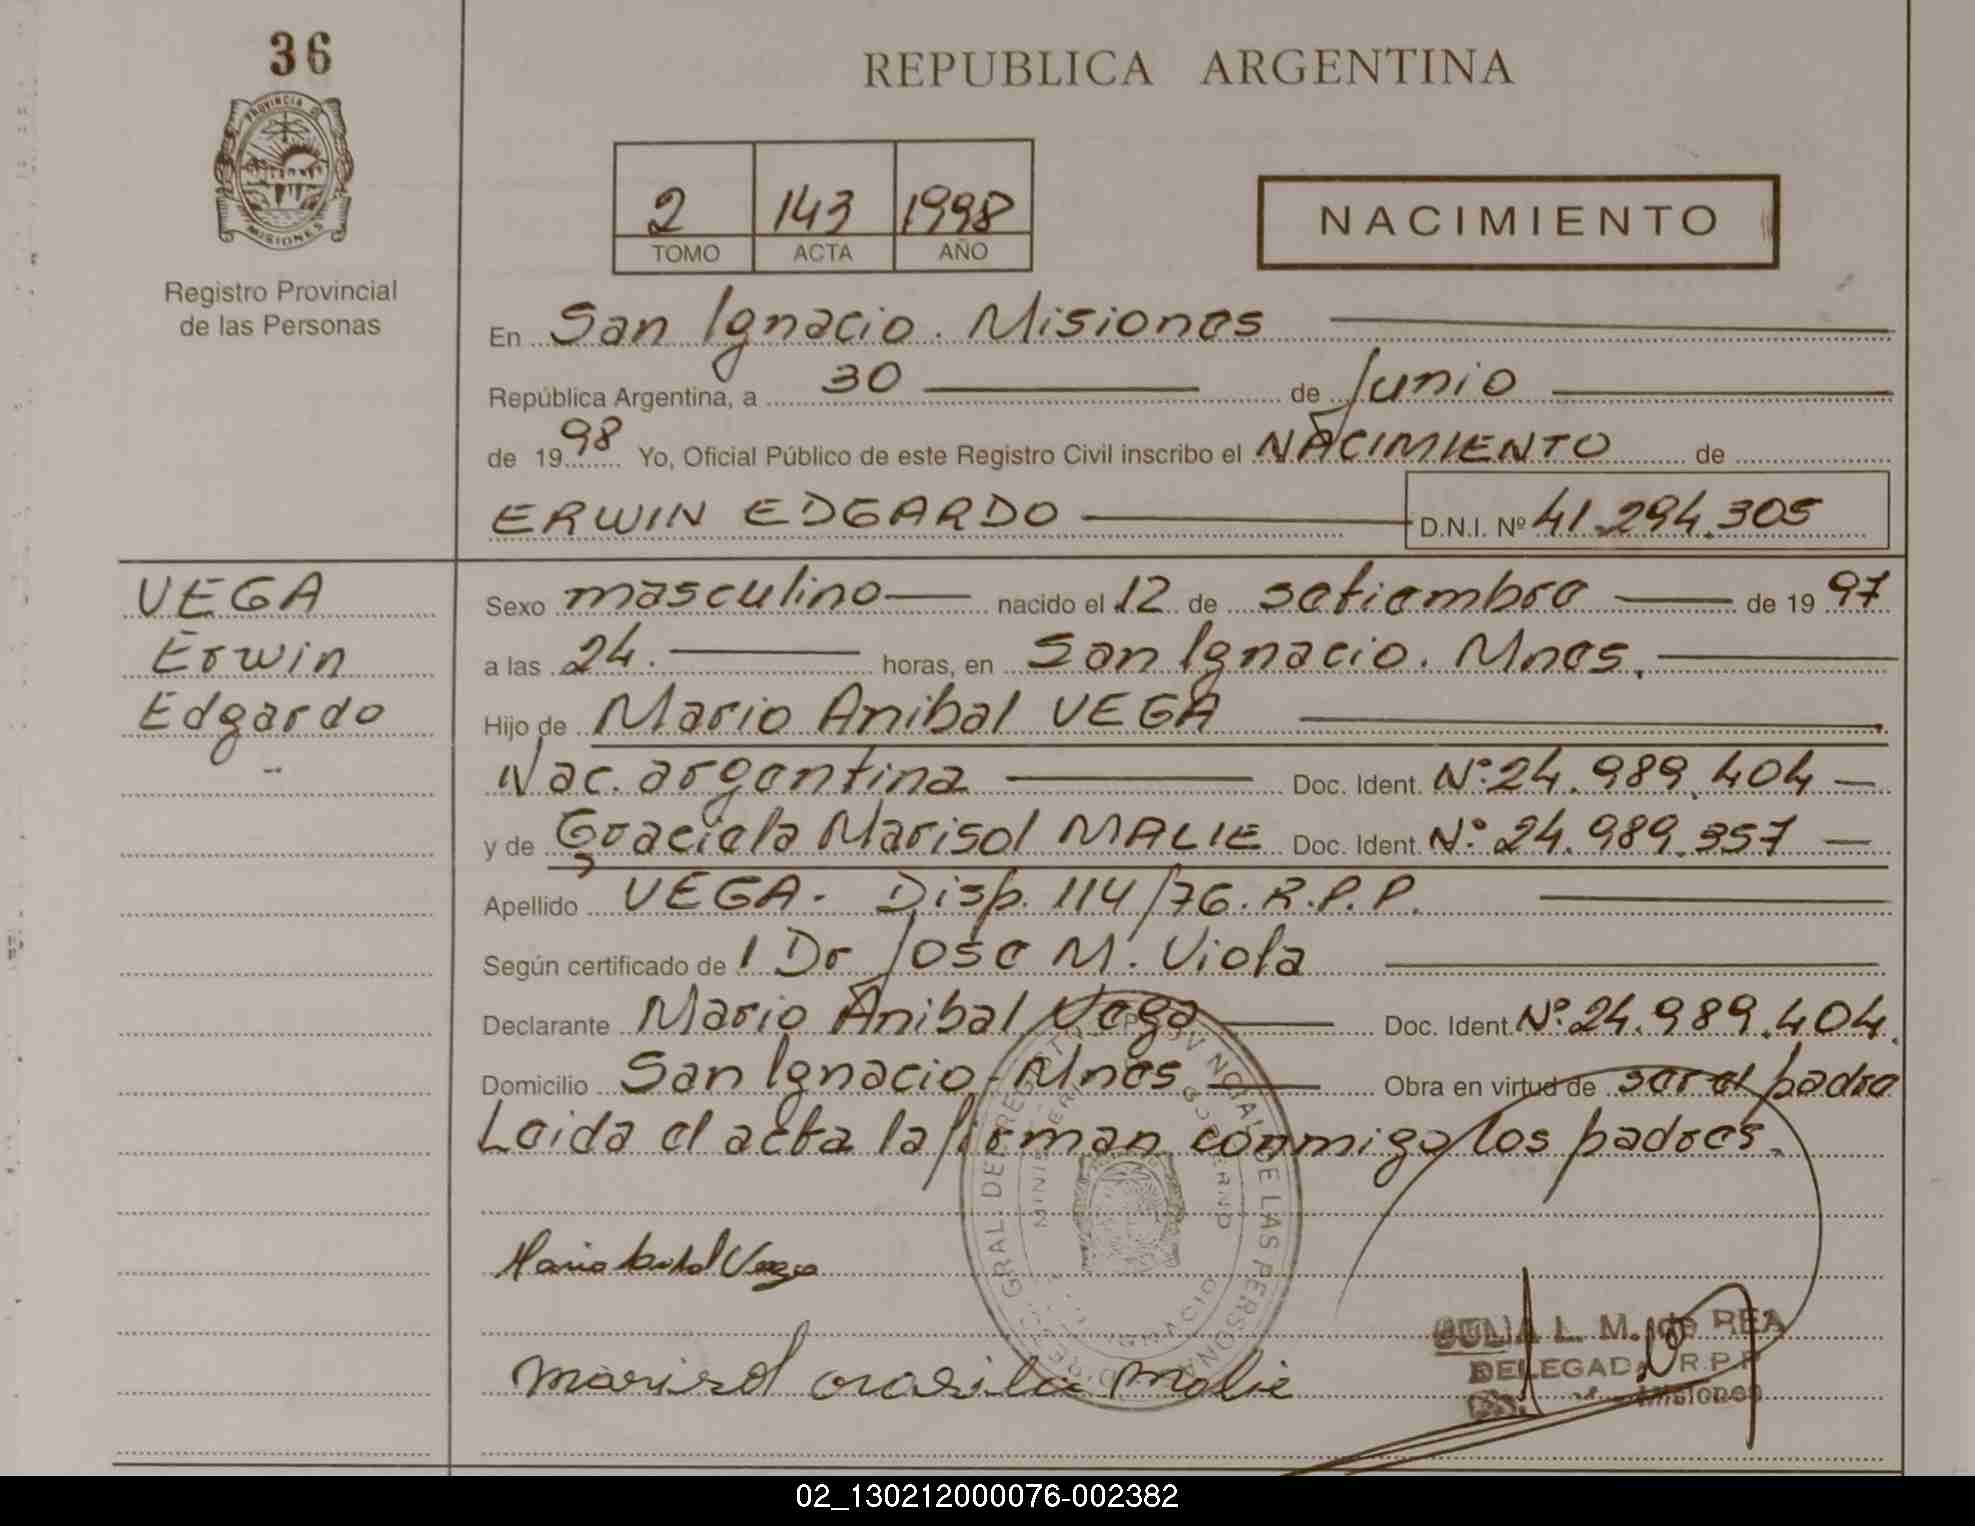 36
REPUBLICA ARGENTINA
PROVINCIA D MISIONES
2 143 1998
TOMO ACTA AÑO
NACIMIENTO
Registro Provincial
de las Personas
En San Ignacio. Misiones
República Argentina, a 30 de Junio
de 1998 Yo, Oficial Público de este Registro Civil inscribo el NACIMIENTO de
ERWIN EDGARDO D.N.I. Nº 41.294.305
VEGA
Erwin
Edgardo
Sexo masculino nacido el 12 de setiembre de 1997
a las 24. horas, en San Ignacio. Mnes.
Hijo de Mario Anibal VEGA
Nac. argentina Doc. Ident. Nº: 24.989.404
y de Graciela Marisol MALIE Doc. Ident. Nº: 24.989.357
Apellido VEGA. Disp. 114/76. R.P.P.
Según certificado de 1 Dr Jose M. Viola
Declarante Mario Anibal Vega Doc. Ident. Nº: 24.989.404.
Domicilio San Ignacio - Mnes Obra en virtud de ser el padre
Leida el acta la firman conmigo los padres.
GRAL DE REGISTRO DE LAS PERSONAS
GOBIERNO
Vega
marisol Malie
L. M. de REA
DELEGADA R.P.P.
Misiones
02_130212000076-002382